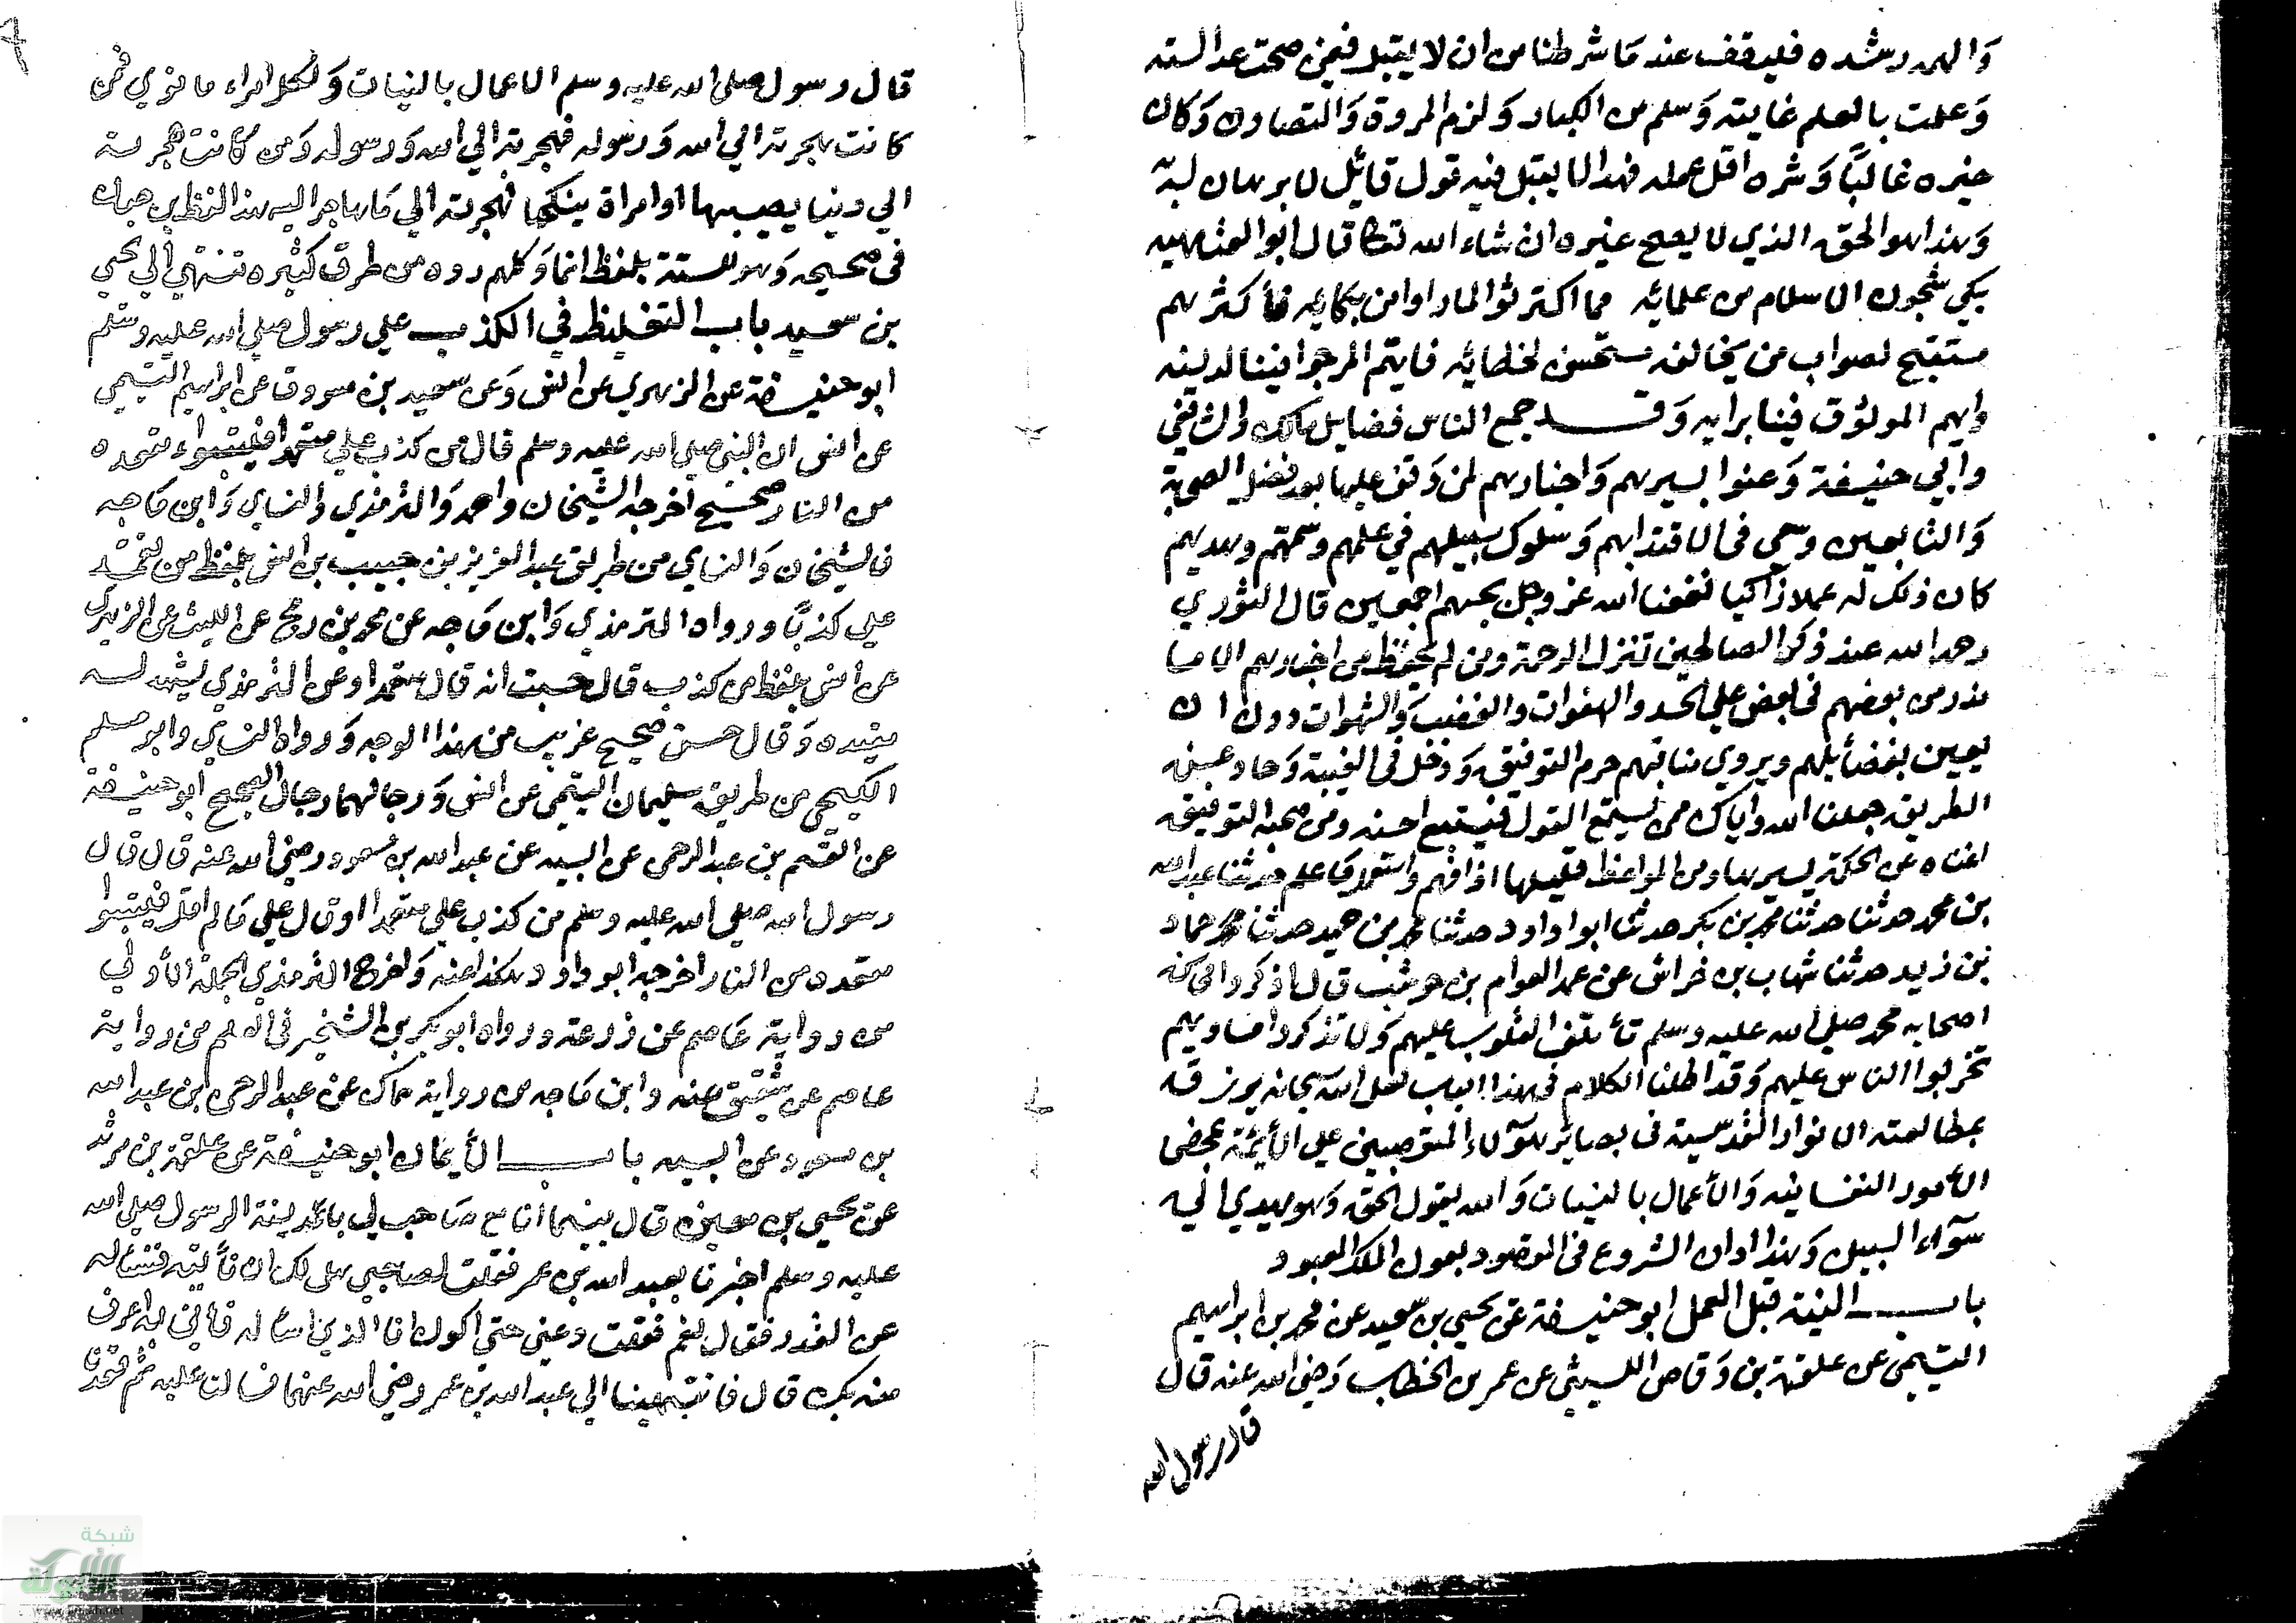 وَالهمه رشده فليقف عند مَا شرطنا من ان لا يقبل فيمن صحت عدالته
وَعلمت بالعلم غايته وَسلم من الكبار وَلزم المروة وَالتصاون وَكان
خيره غالبًا وَشره اقل عمله فهذا لا يقبل فيه قول قائل لا برهان له به
وَهذا هو الحق الذي لا يصح غيره ان شاء الله تعالى قال ابو العتاهيه
بكي شجون الاسلام من علمائه فما اكترثوا لما راوا من بكائه فاكثرهم
مستقبح لصواب من يخالفه مستحسن لخطائه فايهم المرجوا فينا لدينه
وايهم الموثوق فينا برايه وَقد جمع الناس فضايل مالك والشافعي
وابي حنيفة وَعنوا بسيرهم وَاخبارهم فمن وَقف عليها بعد فضل الصحابة
وَالتابعين وسعي في الاقتدا بهم وَسلوك سبيلهم في علمهم وسمتهم وهديهم
كان ذلك له عملا زاكيا نفعنا الله عز وجل بحبهم اجمعين قال الثوري
رحمه الله عند ذكر الصالحين تنزل الرحمة ومن لم يحفظ من اخبارهم الا ما
نذر من بعضهم في بعض علي الحسد والهفوات والغضب وَالشهوات دون ان
يعين بفضائلهم ويروي مناقبهم حرم التوفيق وَدخل في الغيبة وَحاد عن
الطريق جعلنا الله واياك ممن يستمع القول فيتبع احسنه ومن صحبه التوفيق
اغناه عن الحكمة يسيرها ومن المواعظ قليلها اذا فهم واستعمل مَا علم حدثنا عبد الله
بن محمد حدثنا حدثنا محمد بن بكر حدثنا ابوا داود حدثنا محمد بن حميد حدثنا محمد حماد
بن زيد حدثنا شهاب بن خراش عن عمه العوام بن حوشب قال اذكروا محاسن
اصحابه محمد صلى الله عليه وسلم تأتلف القلوب عليهم وَلا تذكروا مساويهم
تخربوا الناس عليهم وَقد اطلنا الكلام في هذا الباب لعل الله سبحانه يرزقه
بمطالعته الانوار القدسية في بصائر هؤلاء المتعصبين علي الأيمة بمحض
الأمور النفسانيه وَالأعمال بالنيات وَالله يقول الحق وَهو يهدي الي
سوآء السبيل وَهذا اوان الشروع في المقصود بعون الملك المعبود
باب النية قبل العمل ابو حنيفة عن يحيي بن سعيد عن محمد بن ابراهيم
التيمي عن علقمة بن وَقاص الليثي عن عمر بن الخطاب رَضي الله عنه قال
قال رسول الله
قال رسول صلى الله عليه وسلم الاعمال بالنيات وَلكل امراء ما نوي فمن
كانت هجرته الي الله وَرسوله فهجرته الي الله وَرسوله وَمن كَانت هجرته
الي دنيا يصيبها او امراة ينكحها فهجرته الي مَا هاجر اليه هذا لفظ ابن حبان
في صحيحه وَهو للستة بلفظ انما وَكلهم رووه من طرق كثيره تنتهي الي يحيي
بن سعيد باب التغليظ في الكذب علي رسول صلى الله عليه وسلم
ابو حنيفة عن الزهري عن انس وَعن سعيد بن مسروق عن ابراهيم التيمي
عن انس ان النبي صلى الله عليه وسلم قال من كذب علي متعمدا فليتبواء مقعده
من النار صحيح اخرجه الشيخان واحمد وَالترمذي والنساي وَابن مَاجه
فالشيخان وَالنساي من طريق عبد العزيز بن حبيب بن انس بلفظ من تعمد
علي كذبًا ورواه الترمذي وَابن مَاجه عن محمد بن رمح عن الليث عن الزهري
عن انس بلفظ من كذب قال حسبت انه قال متعمدا وعن الترمذي بيته بدل
مقعده وَقال حسن صحيح غريب من هذا الوجه وَرواه النساي وابو مسلم
الكجي من طريق سليمان التيمي عن انس وَرجالهما رجال الصحيح ابو حنيفة
عن القسم بن عبد الرحمن عن ابيه عن عبد الله بن مسعود رضي الله عنه قال قال
رسول الله صلى الله عليه وسلم من كذب علي متعمدا او قال علي مَا لم اقل فليتبوا
مقعده من النار اخرجه ابو داود هكذا عنه وَاخرج الترمذي الجملة الأولي
من رواية عَاصم عن زرعة ورواه ابو بكر بن الشخير في العلم من رواية
عاصم عن شقيق عنه وابن مَاجه من رواية سماك عن عبد الرحمن ابن عبد الله
بن مسعود عن ابيه باب الأيمان ابو حنيفة عن علقمة بن مرثد
عن يحيي بن معين قال بينما انا مع صَاحب لي بالمدينة الرسول صلى الله
عليه وسلم اخبرنا بعبد الله بن عمر فقلت لصاحبي هل لك ان نأتيه فنسأله
عن القدر فقال نعم فقلت دعني حتي اكون انا الذي اسأله فاني به اعرف
منه بك قال فانتهينا الي عبد الله بن عمر رضي الله عنهما فسالت عليه ثم قعدنا
شبكة
الألوكة
www.alukah.net